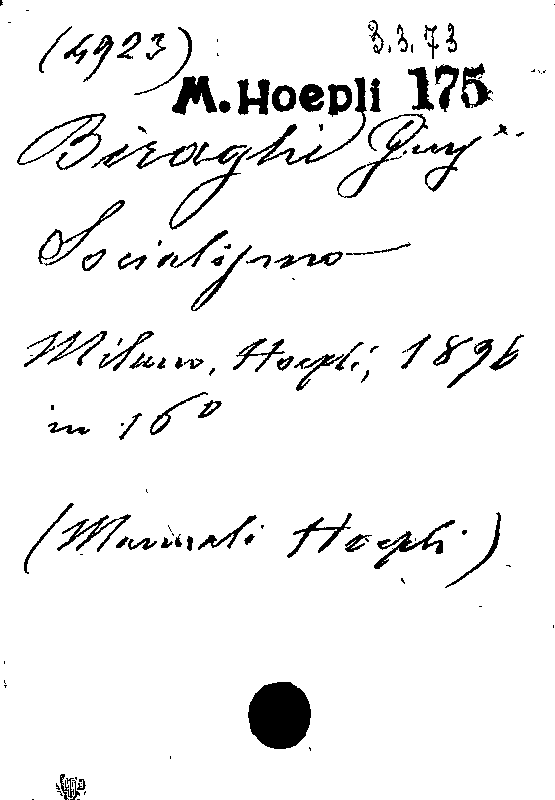 (4923)
3.3.73
M. Hoepli 175
Biraghi Gius.
Socialismo
Milano, Hoepli, 1896
in 16º
(Manuali Hoepli)